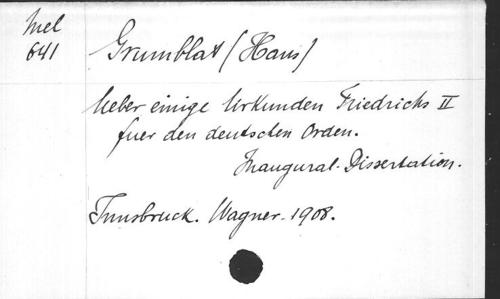 Mel
641
Grumblat (Hans)
Ueber einige Urkunden Friedrichs II
fuer den deutschen Orden.
Inaugural-Dissertation.
Innsbruck. Wagner. 1908.